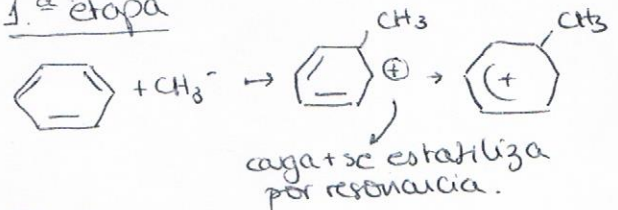 1.ª etapa
CH3 CH3
+ CH3⁻ → ⊕ → (+
carga + se estabiliza
por resonancia.